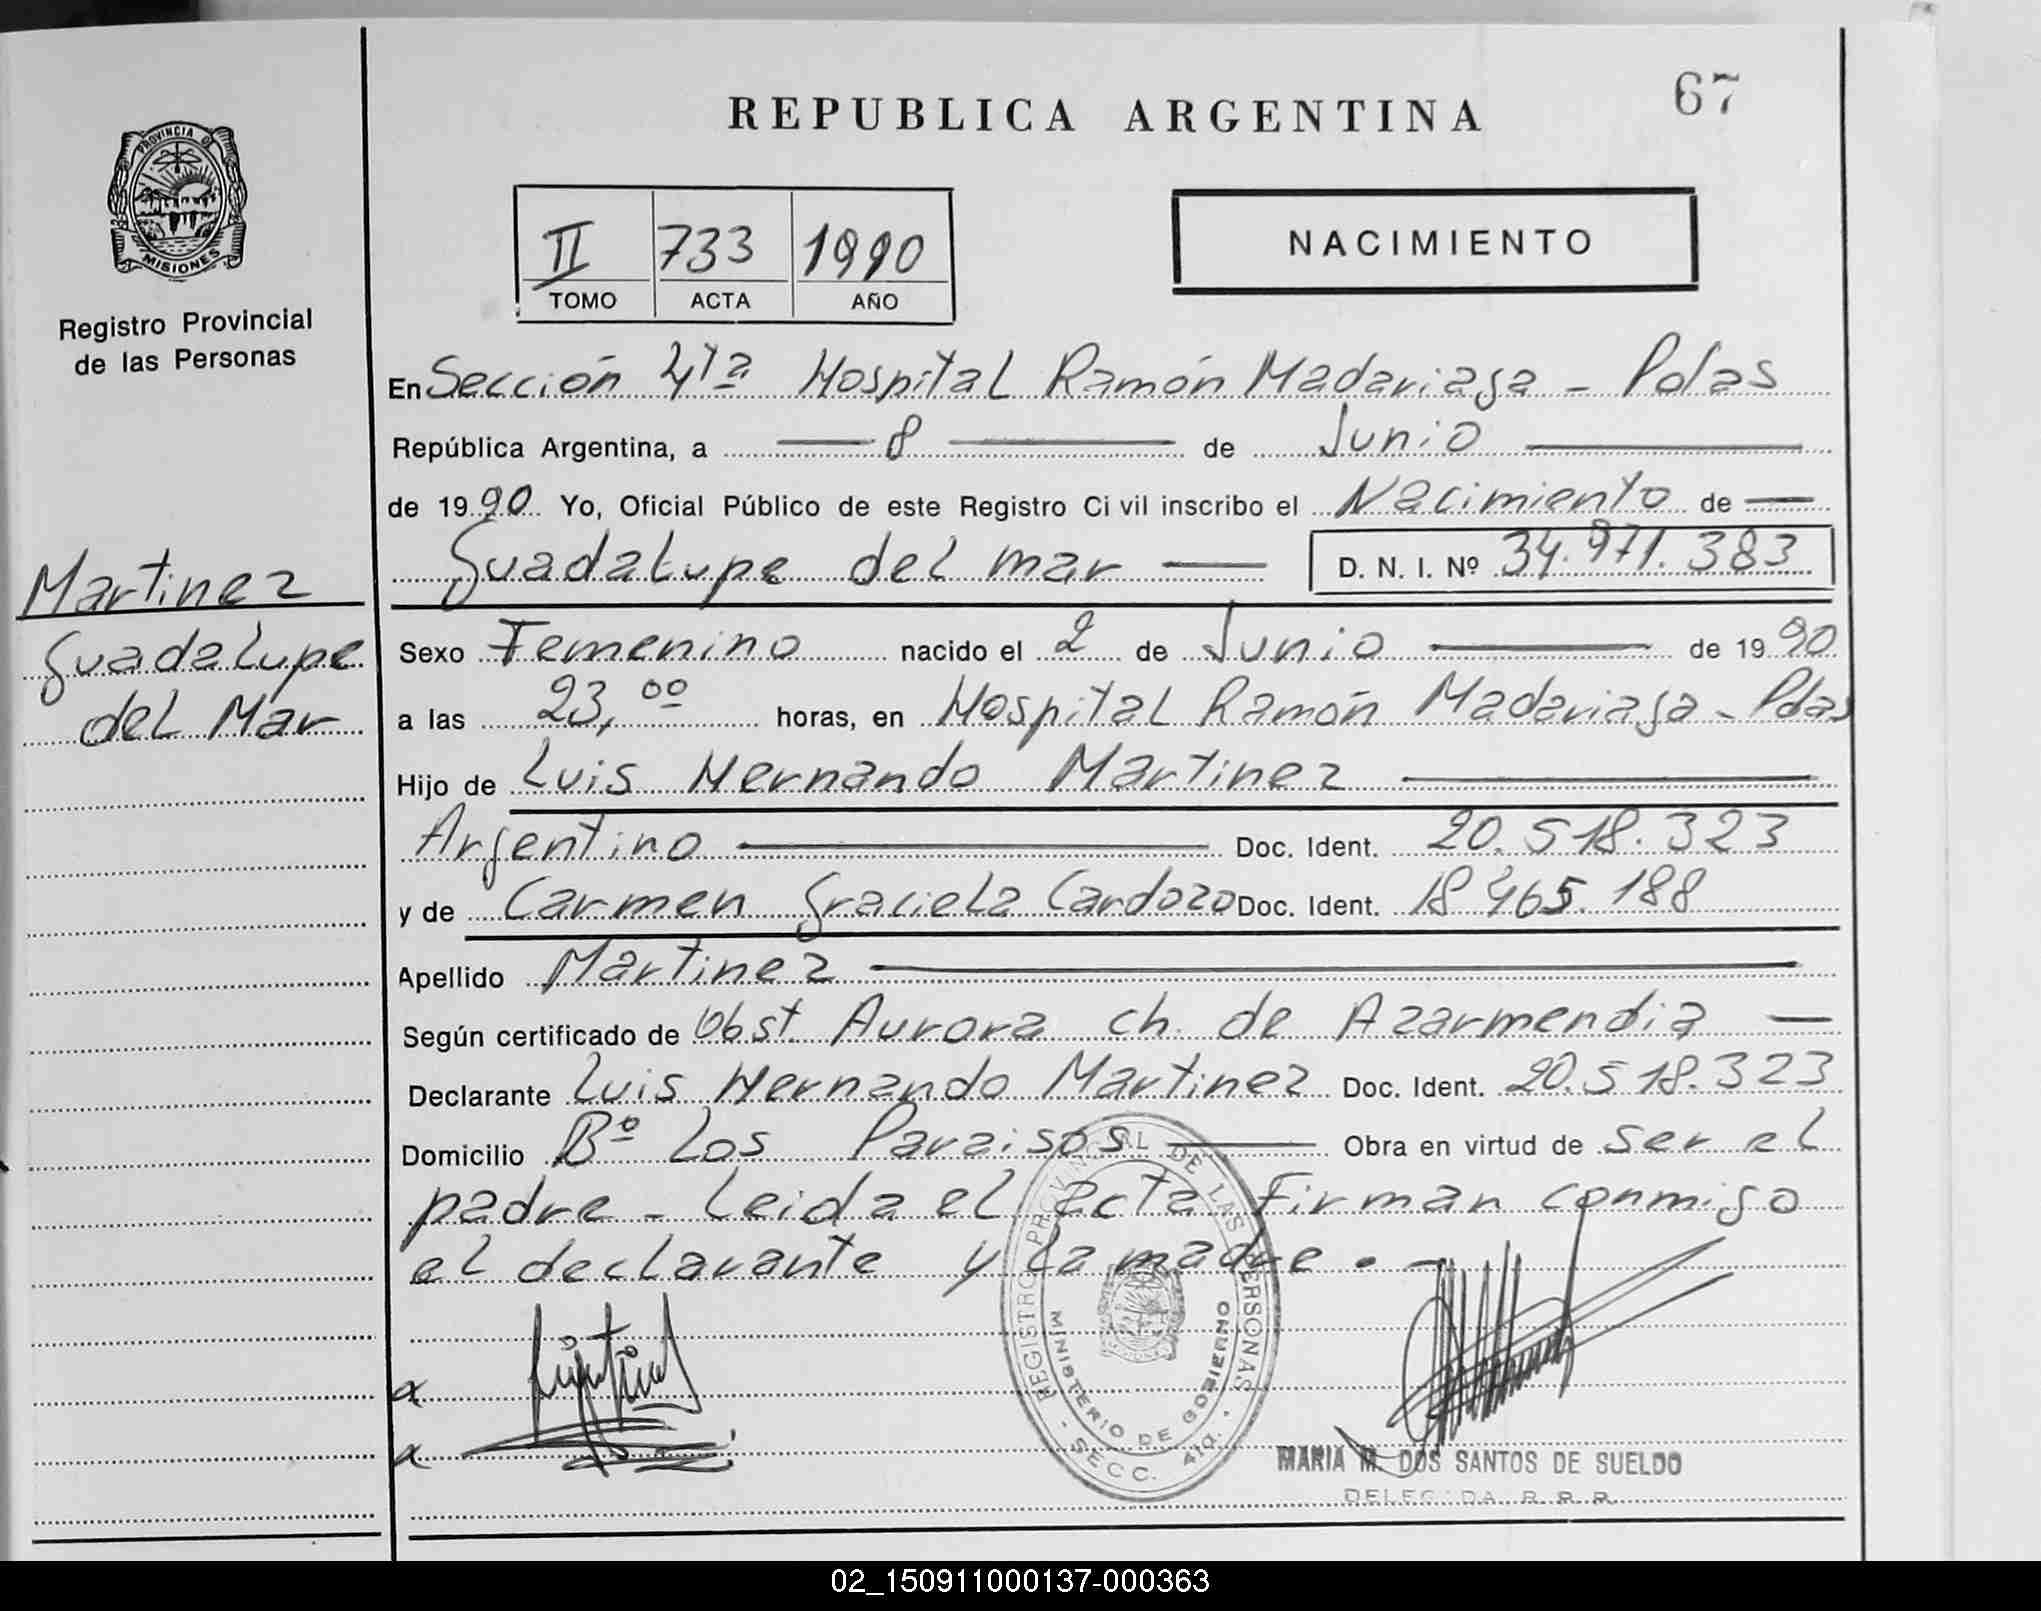 67
REPUBLICA ARGENTINA
PROVINCIA DE
MISIONES
Registro Provincial
de las Personas
II 733 1990
TOMO ACTA AÑO
NACIMIENTO
En Sección 4ta Hospital Ramón Madariaga - Pdas
República Argentina, a 8 de Junio
de 1990 Yo, Oficial Público de este Registro Civil inscribo el Nacimiento de
Guadalupe del mar D. N. I. Nº 34.971.383
Martinez
Guadalupe
del Mar
Sexo Femenino nacido el 2 de Junio de 1990
a las 23,00 horas, en Hospital Ramón Madariaga - Pdas
Hijo de Luis Hernando Martinez
Argentino Doc. Ident. 20.518.323
y de Carmen Graciela Cardozo Doc. Ident. 18465.188
Apellido Martinez
Según certificado de Obst. Aurora ch. de Azarmendia
Declarante Luis Hernando Martinez Doc. Ident. 20.518.323
Domicilio Bº Los Paraisos Obra en virtud de ser el
padre - Leida el acta Firman conmigo
el declarante y la madre. -
REGISTRO PROVINCIAL DE LAS PERSONAS
MINISTERIO DE GOBIERNO
- SECC. 4ta. -
MARIA M. DOS SANTOS DE SUELDO
DELEGADA R. P. P.
02_150911000137-000363